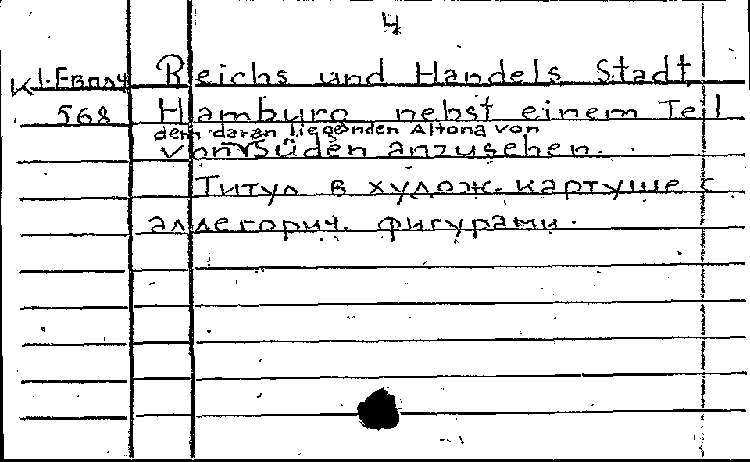 4
К 1-Европ Reichs und Handels Stadt
568 Hamburg nebst einem Teil
dem daran liegenden Altona von
von Süden anzusehen.
Титул в худож. картуше с
аллегорич. фигурами.